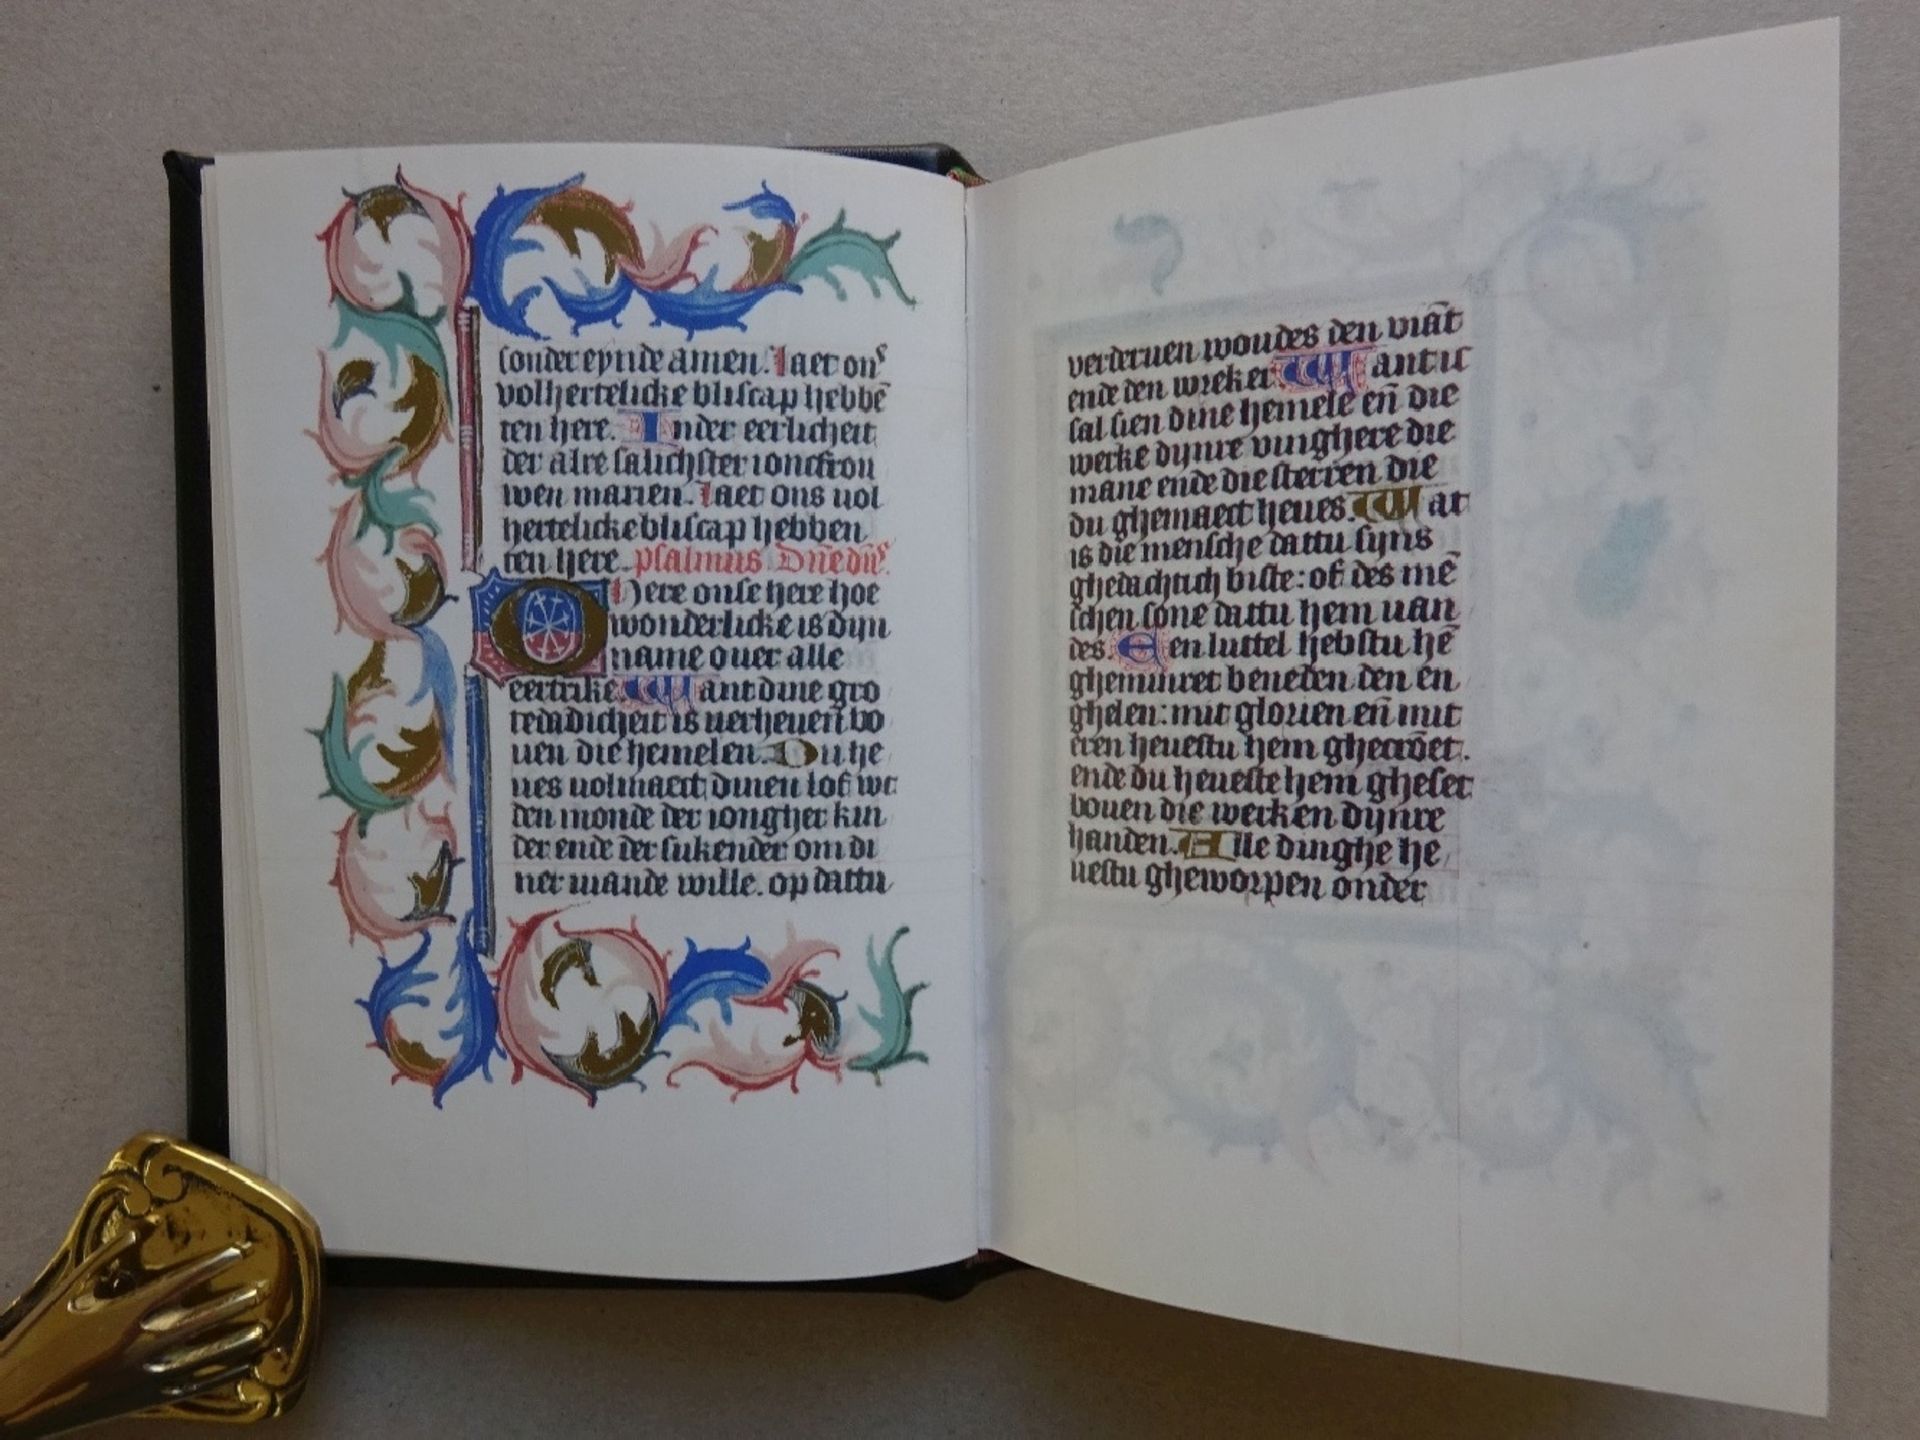 sonder eynde amen. Laet onſ
volhertelicke bliscap hebbē
ten here. In der eerlicheit
der alre salichster ioncfrou
wen marien. Laet ons vol
hertelicke bliscap hebben
ten here. psalmus Dn̄e dn̄ſ.
O here onse here hoe
wonderlicke is dijn
name ouer alle
eertrike Want dine gro
tedadicheit is verheuen bo
uen die hemelen. Du he
ues volmaect dinen lof wt
den monde der iongher kin
der ende der sukender om di
ner viande wille. op dattu
verderuen woudes den viāt
ende den wreker. Want ic
sal sien dine hemele en̄ die
werke dijnre vinghere die
mane ende die sterren die
du ghemaect heues. Wat
is die mensche dattu sijns
ghedachtich biste: of des mē
schen sone dattu hem uan
des. Een luttel hebstu hē
gheminret beneden den en
ghelen: mit glorien en̄ mit
eren heuestu hem ghecrōet.
ende du heueste hem gheset
bouen die werken dijnre
handen. Alle dinghe he
uestu gheworpen onder